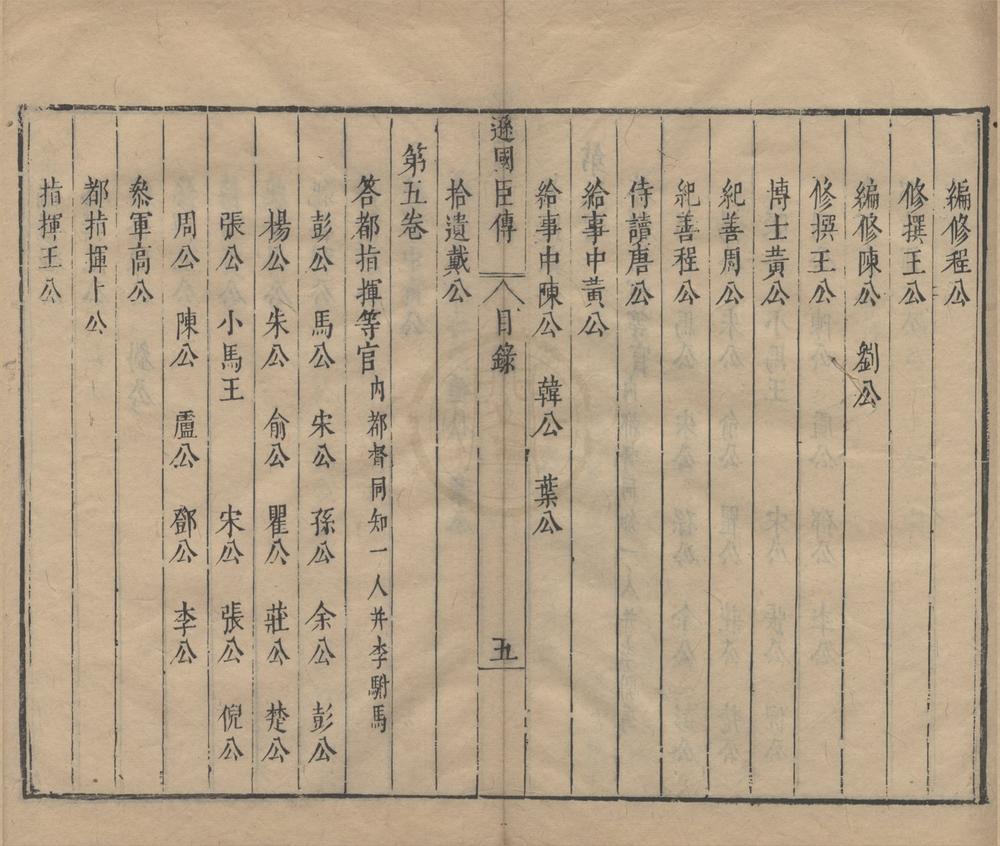 編修程公
修撰王公
編修陳公　劉公
修撰王公
博士黄公
紀善周公
紀善程公
侍讀唐公
給事中黄公
給事中陳公　韓公　葉公
遜國臣傳　目錄　五
拾遺戴公
第五卷
答都指揮等官內都督同知一人并李駙馬
彭公　馬公　宋公　孫公　余公　彭公
楊公　朱公　俞公　瞿公　莊公　楚公
張公　小馬王　宋公　張公　倪公
周公　陳公　盧公　鄧公　李公
叅軍高公
都指揮卜公
指揮王公